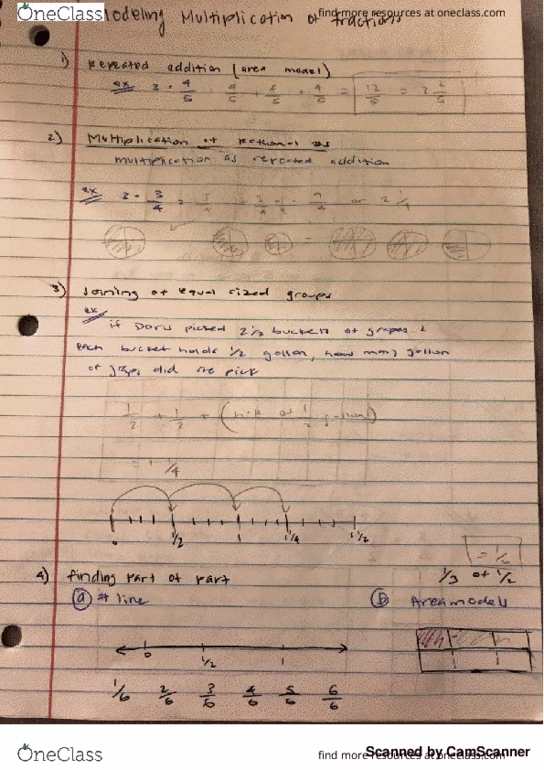 OneClass
find more resources at oneclass.com
Modeling Multiplication of fractions
1) Repeated addition (area model)
ex 3 · 4/5 = 4/5 + 4/5 + 4/5 = 12/5 = 2 2/5
2) Multiplication of rational as
multiplication as repeated addition
ex 3 · 3/4 = 9/4 or 2 1/4
3) Joining of equal sized groups
ex
if Doris picked 2 1/2 buckets of grapes &
each bucket holds 1/2 gallon, how many gallon
of grapes did she pick
1/2 + 1/2 + ( of 1/2 gallons)
= 1 1/4
0 1/2 1 1 1/4 1 1/2
4) finding part of part
1/3 of 1/2
(a) # line
(B) Area models
0 1/2 1
1/6 2/6 3/6 4/6 5/6 6/6
OneClass
find more resources at oneclass.com
Scanned by CamScanner